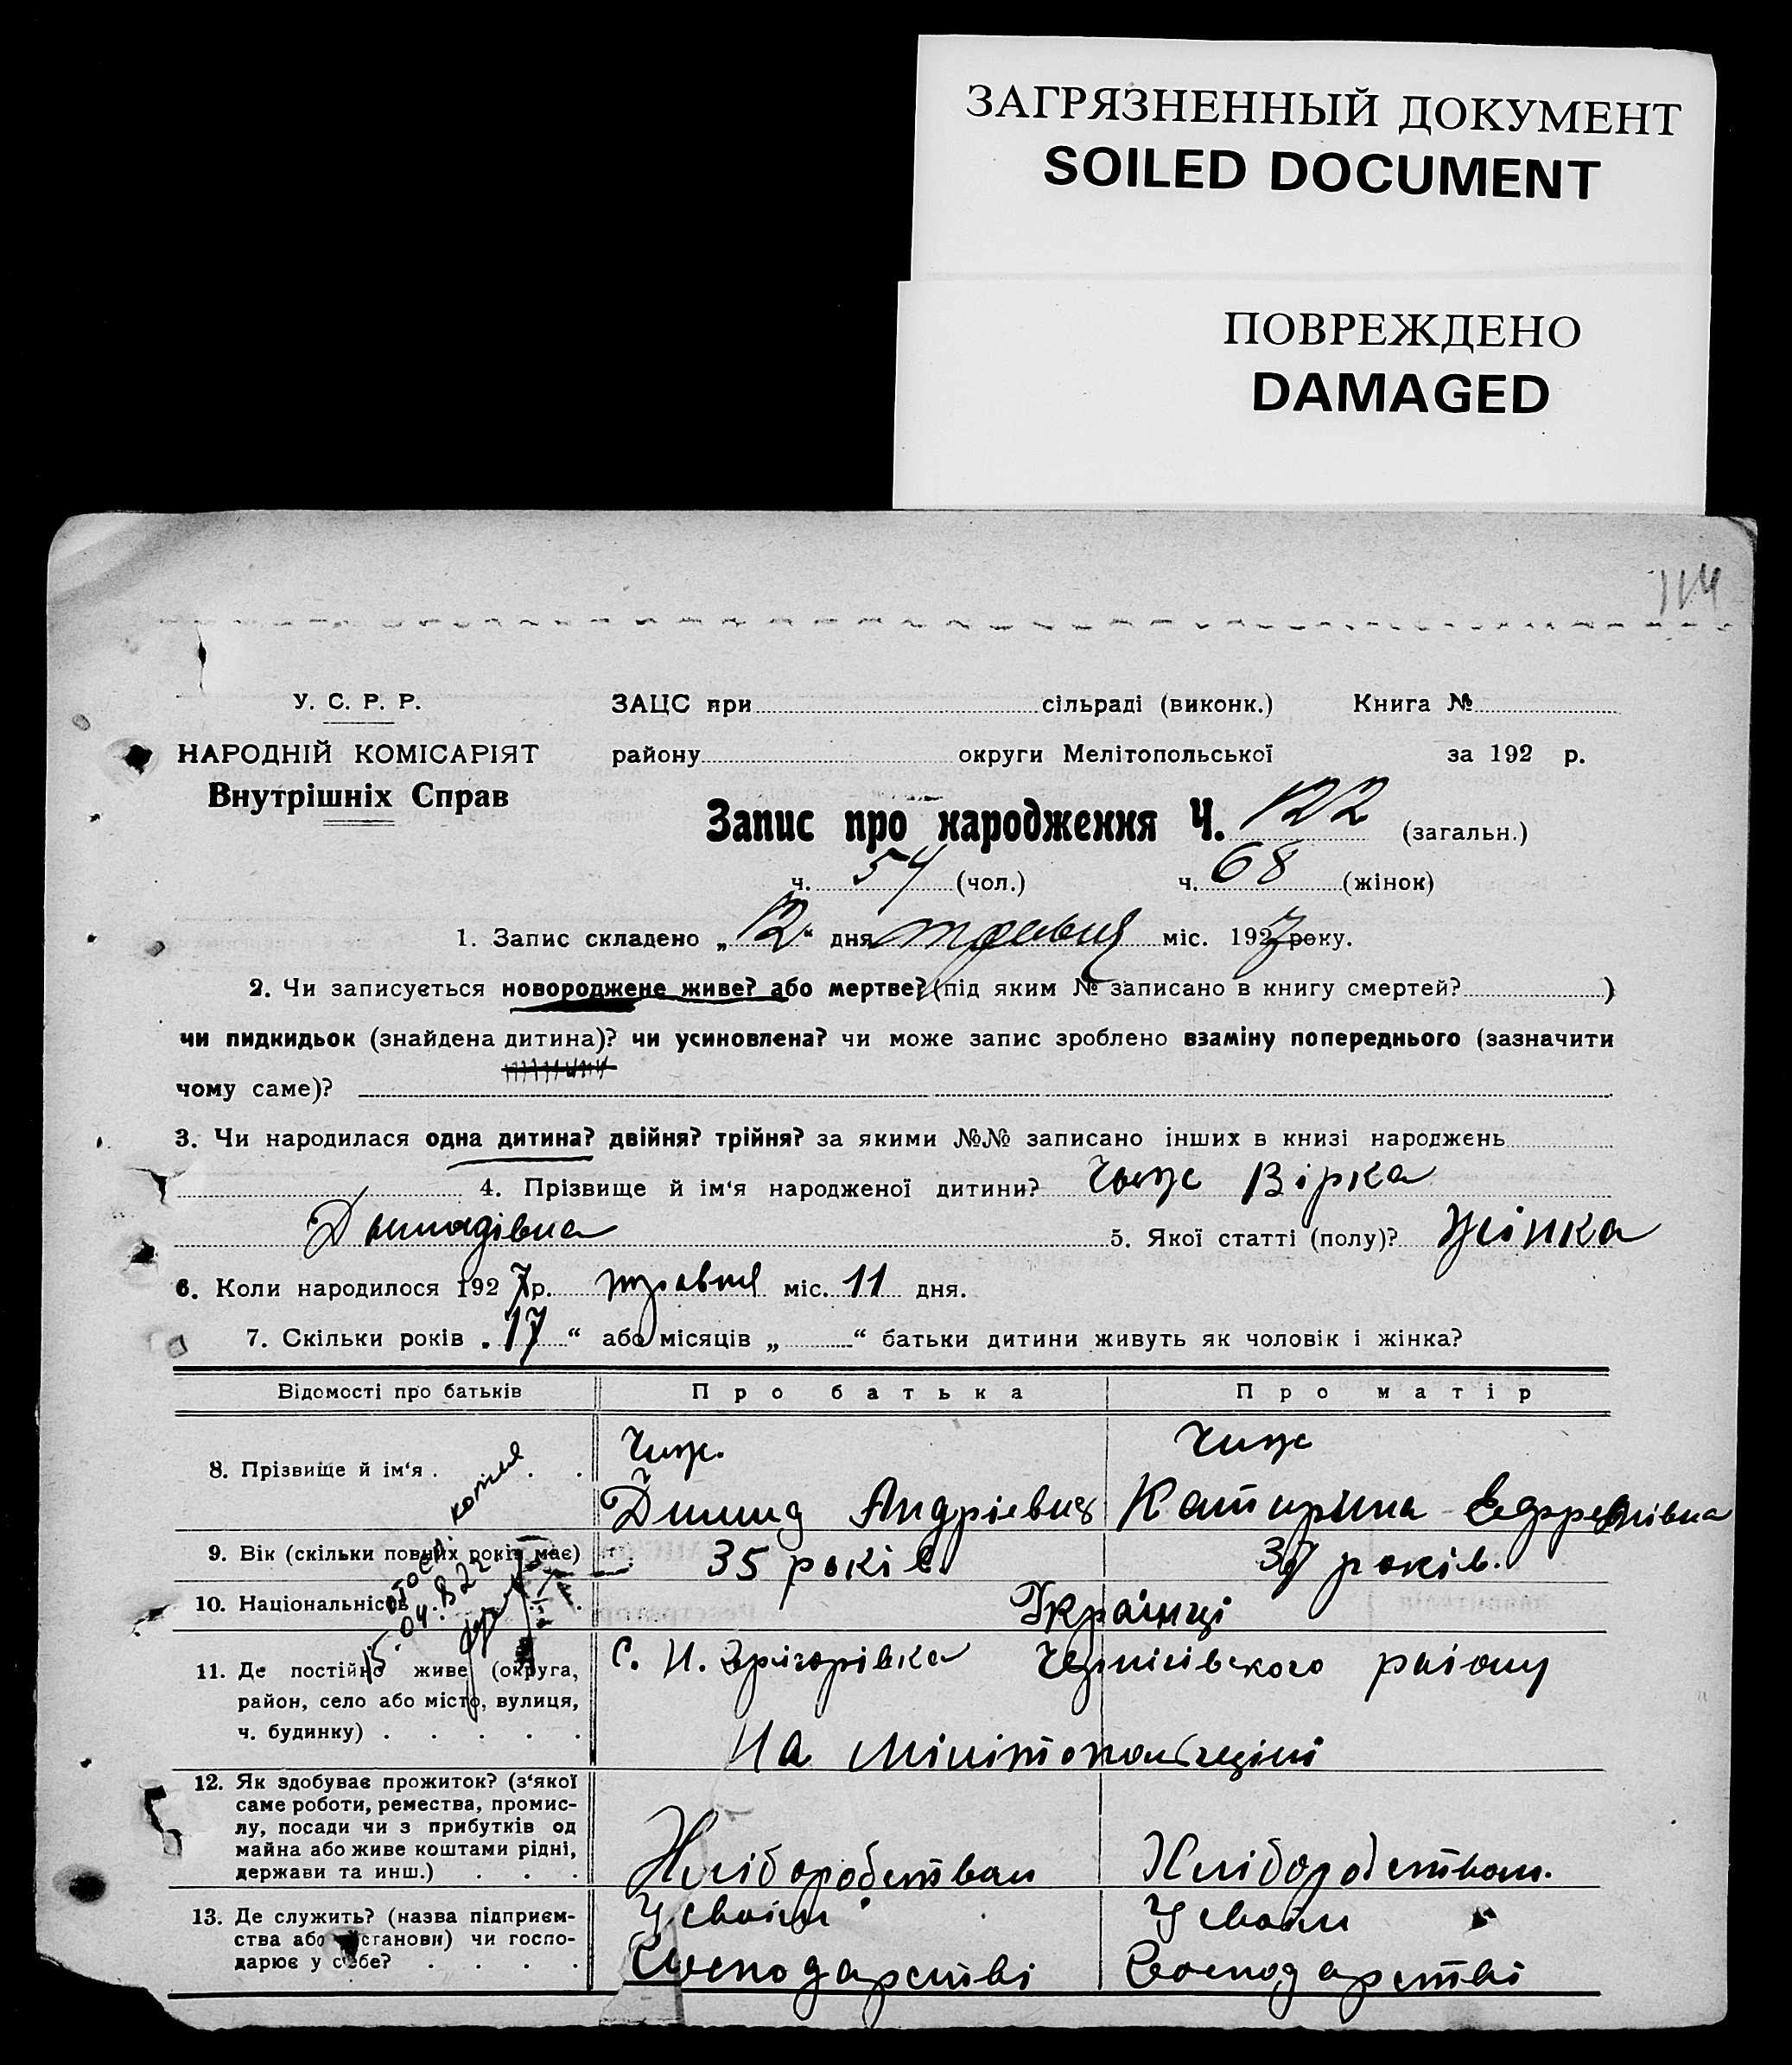 ЗАГРЯЗНЕННЫЙ ДОКУМЕНТ
SOILED DOCUMENT
ПОВРЕЖДЕНО
DAMAGED
114
У. С. Р. Р.
ЗАЦС при сільраді (виконк.) Книга №
НАРОДНІЙ КОМІСАРІЯТ
району округи Мелітопольської за 192 р.
Внутрішніх Справ
Запис про народження Ч. 122 (загальн.)
ч. 54 (чол.) ч. 68 (жінок)
1. Запис складено „12“ дня травня міс. 1927 року.
2. Чи записується новороджене живе? або мертве? (під яким № записано в книгу смертей? )
чи пидкидьок (знайдена дитина)? чи усиновлена? чи може запис зроблено взаміну попереднього (зазначити
чому саме)?
3. Чи народилася одна дитина? двійня? трійня? за якими №№ записано інших в книзі народжень
4. Прізвище й ім‘я народженої дитини? Чиж Вірка
5. Якої статті (полу)? Жінка
6. Коли народилося 1927 р. травня міс. 11 дня.
7. Скільки років „17“ або місяців „ “ батьки дитини живуть як чоловік і жінка?
Відомості про батьків Про батька Про матір
8. Прізвище й ім‘я . . . Чиж. Чиж
Андрієвич Катирина
9. Вік (скільки повних років має) 35 років 37 років.
10. Національність . . Українці
11. Де постійно живе (округа,
район, село або місто, вулиця,
ч. будинку) . . . . .
С. Н. Григорівка Чернігівского району
На Мілітопольщіні
12. Як здобуває прожиток? (з‘якої
саме роботи, ремества, промис-
лу, посади чи з прибутків од
майна або живе коштами рідні,
держави та инш.) . . .
Хліборобством Хліборобством.
13. Де служить? (назва підприєм-
ства або установи) чи госпо-
дарює у себе? . . . .
У своїм У своїм
Господарстві Господарстві
копия
15.04.